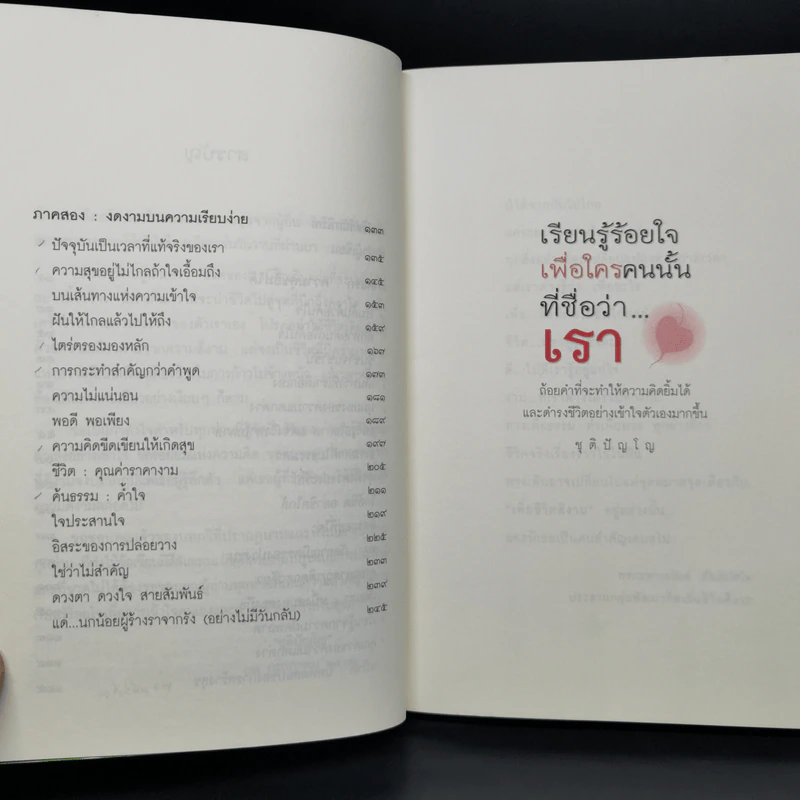 ภาคสอง : งดงามบนความเรียบง่าย ๑๓๓
ปัจจุบันเป็นเวลาที่แท้จริงของเรา ๑๓๕
ความสุขอยู่ไม่ไกลถ้าใจเอื้อมถึง ๑๔๕
บนเส้นทางแห่งความเข้าใจ ๑๕๓
ฝันให้ไกลแล้วไปให้ถึง ๑๕๙
ไตร่ตรองมองหลัก ๑๖๗
การกระทำสำคัญกว่าคำพูด ๑๗๓
ความไม่แน่นอน ๑๘๑
พอดี พอเพียง ๑๘๙
ความคิดขีดเขียนให้เกิดสุข ๑๙๗
ชีวิต : คุณค่าราคางาม ๒๐๕
ค้นธรรม : ค้ำใจ ๒๑๑
ใจประสานใจ ๒๑๙
อิสระของการปล่อยวาง ๒๒๕
ใช่ว่าไม่สำคัญ ๒๓๓
ดวงตา ดวงใจ สายสัมพันธ์ ๒๓๙
แด่...นกน้อยผู้ร้างราจากรัง (อย่างไม่มีวันกลับ) ๒๔๕
เรียนรู้ร้อยใจ
เพื่อใครคนนั้น
ที่ชื่อว่า...
เรา
ถ้อยคำที่จะทำให้ความคิดยิ้มได้
และดำรงชีวิตอย่างเข้าใจตัวเองมากขึ้น
ชุติปัญโญ